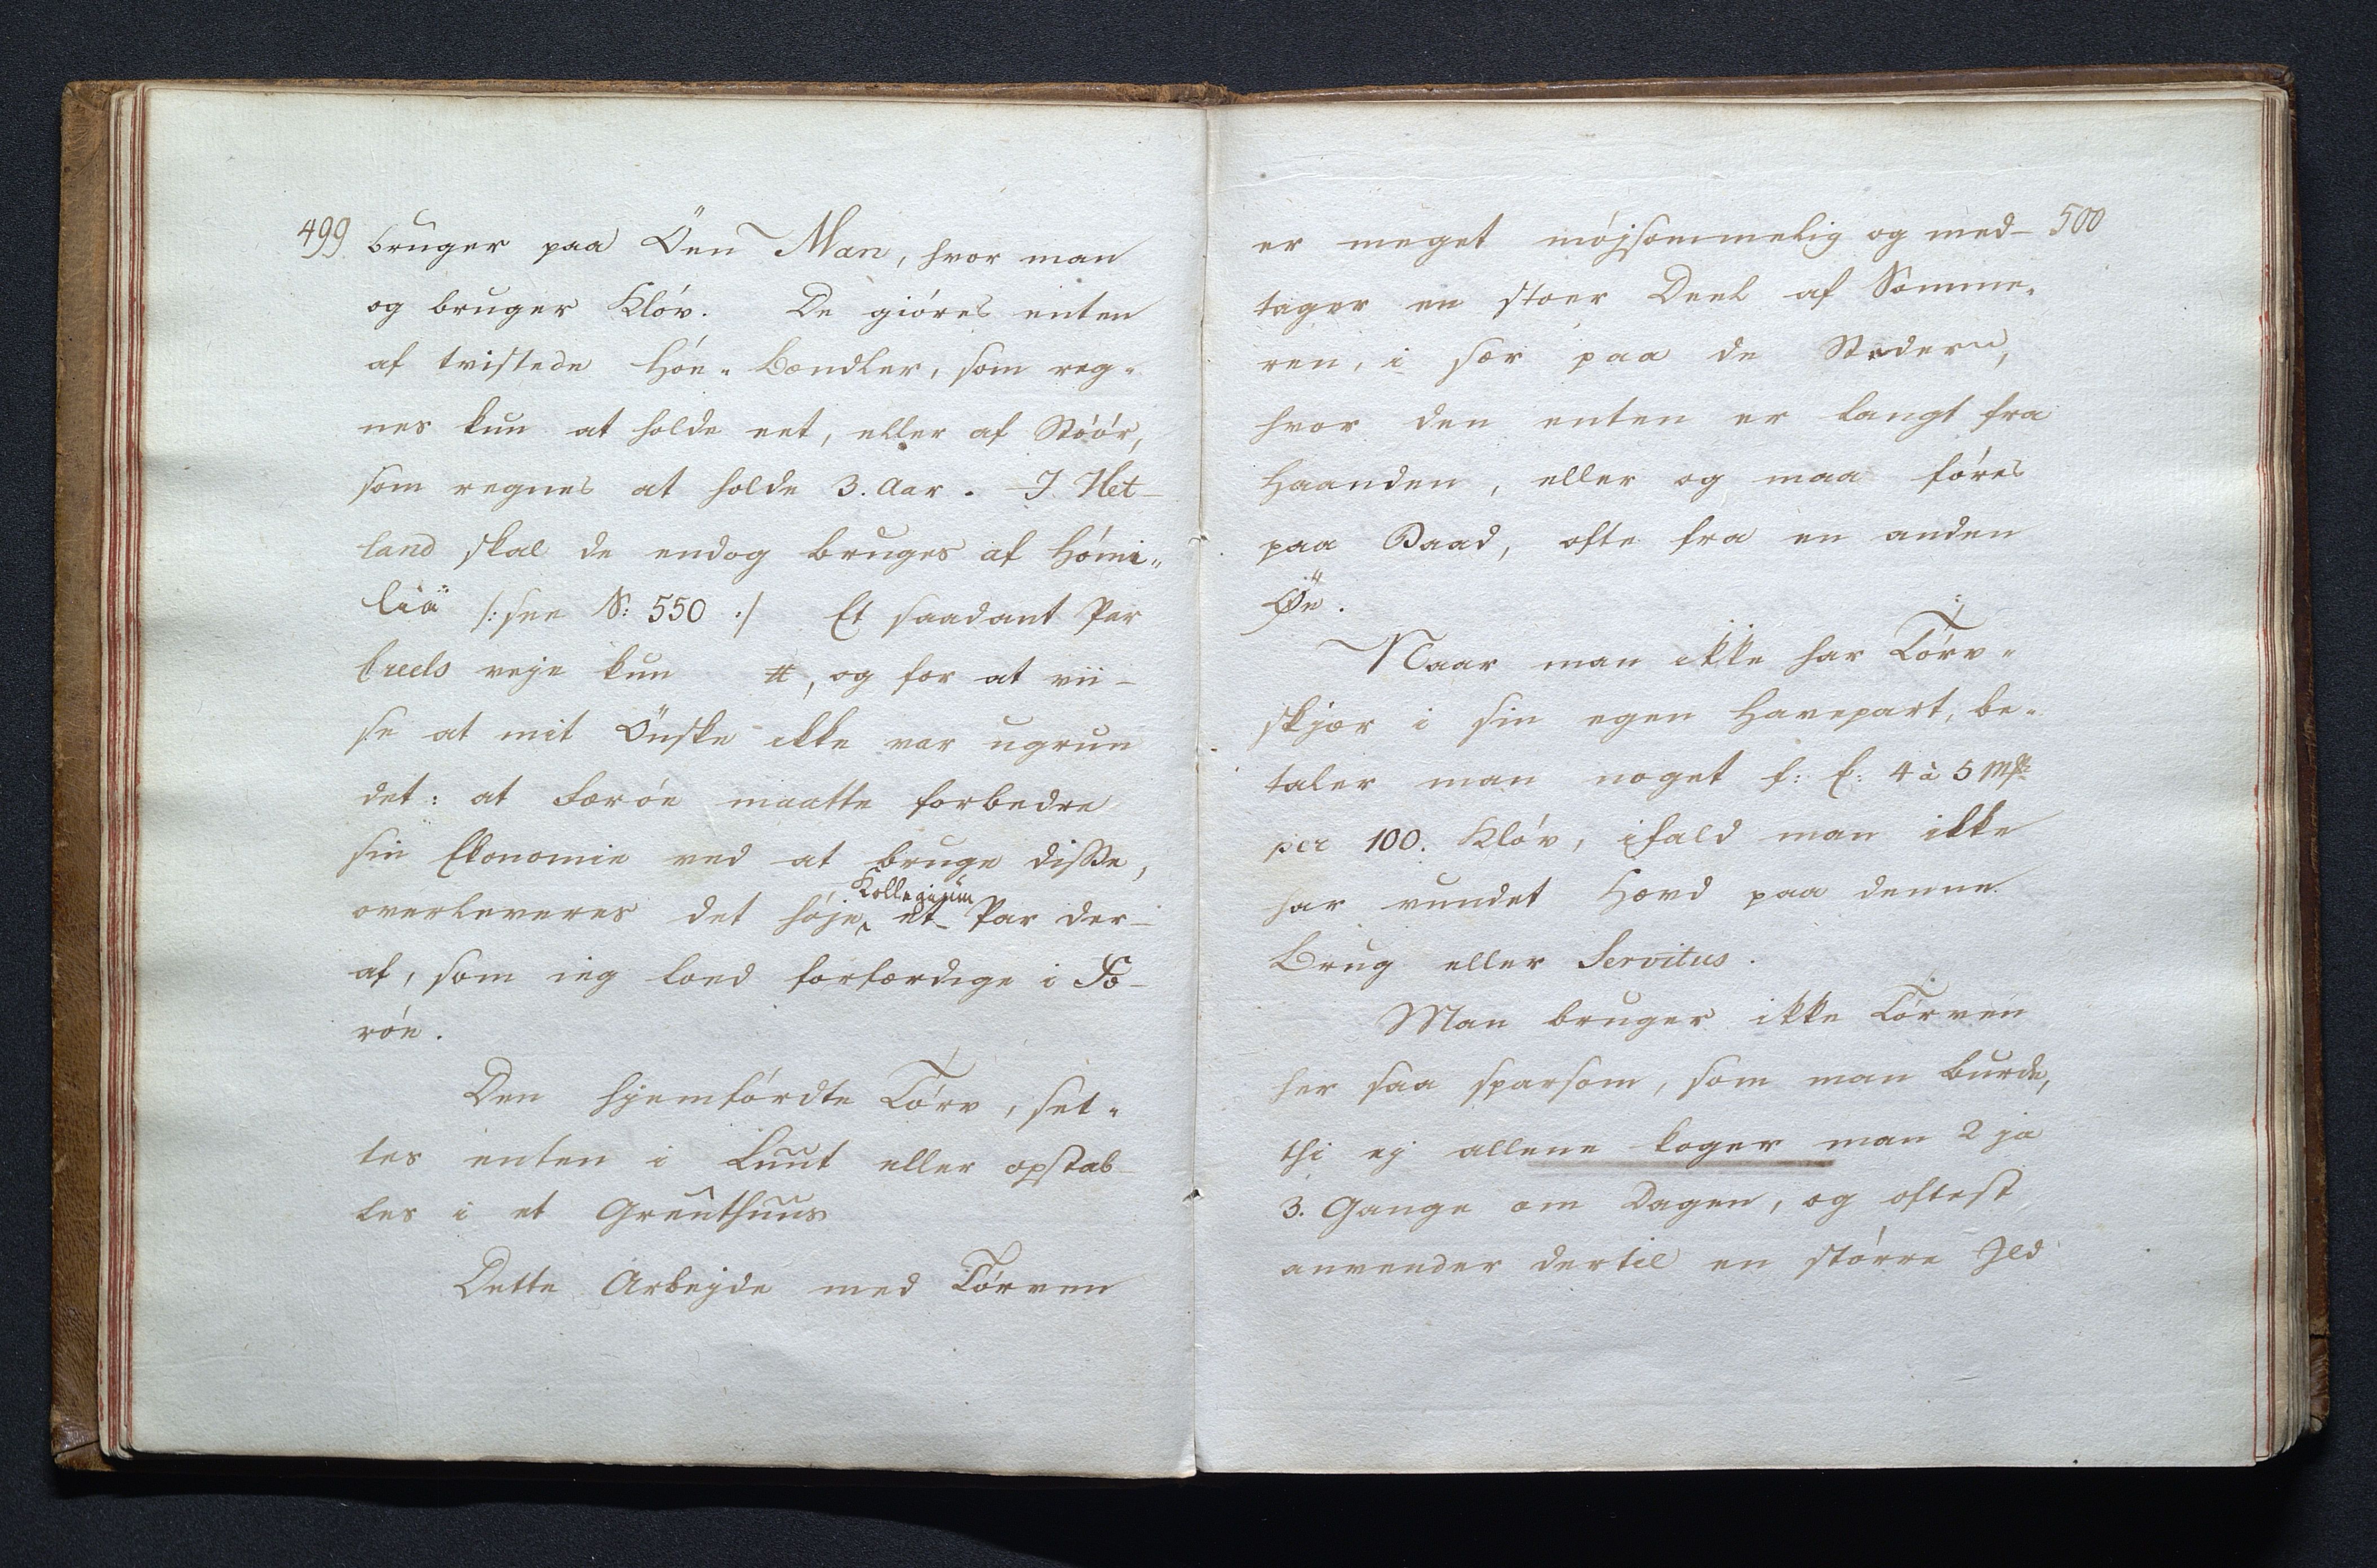 499 bruger paa Öen Man, hvor man
og bruger Klöv. De giöres enten
af tvistede Höe-bændler, som reg-
nes kun at holde eet, eller af Stöör,
som regnes at holde 3. Aar. I Het-
land skal de endog bruges af Hömi-
liä /: see N: 550 :/ Et saadant Par
breels veje kun ℔, og for at vii-
se at mit Önske ikke var ugrun
det: at Færöe maatte forbedre
sin Ekonomie ved at bruge disse,
overleveres det höje Kollegium et Par der-
af, som ieg loed forfærdige i Fæ-
röe.
Den hjemfördte Törv, set-
tes enten i Luut eller opstab-
les i et Gruuthuus
Dette Arbejde med Törven
er meget möjsommelig og med- 500
tager en stoer Deel af Somme-
ren, i sær paa de Stæder,
hvor den enten er langt fra
Haanden, eller og maa föres
paa Baad, ofte fra en anden
Öe.
Naar man ikke har Törv-
skjær i sin egen Havepart, be-
taler man noget f: E: 4 à 5 mk
per 100. Klöv, ifald man ikke
har vundet Hævd paa denne
Brug eller Servitus.
Man bruger ikke Törven
her saa sparsom, som man burde,
thi ej allene koger man 2 ja
3. Gange om Dagen, og oftest
anvender dertil en större Ild